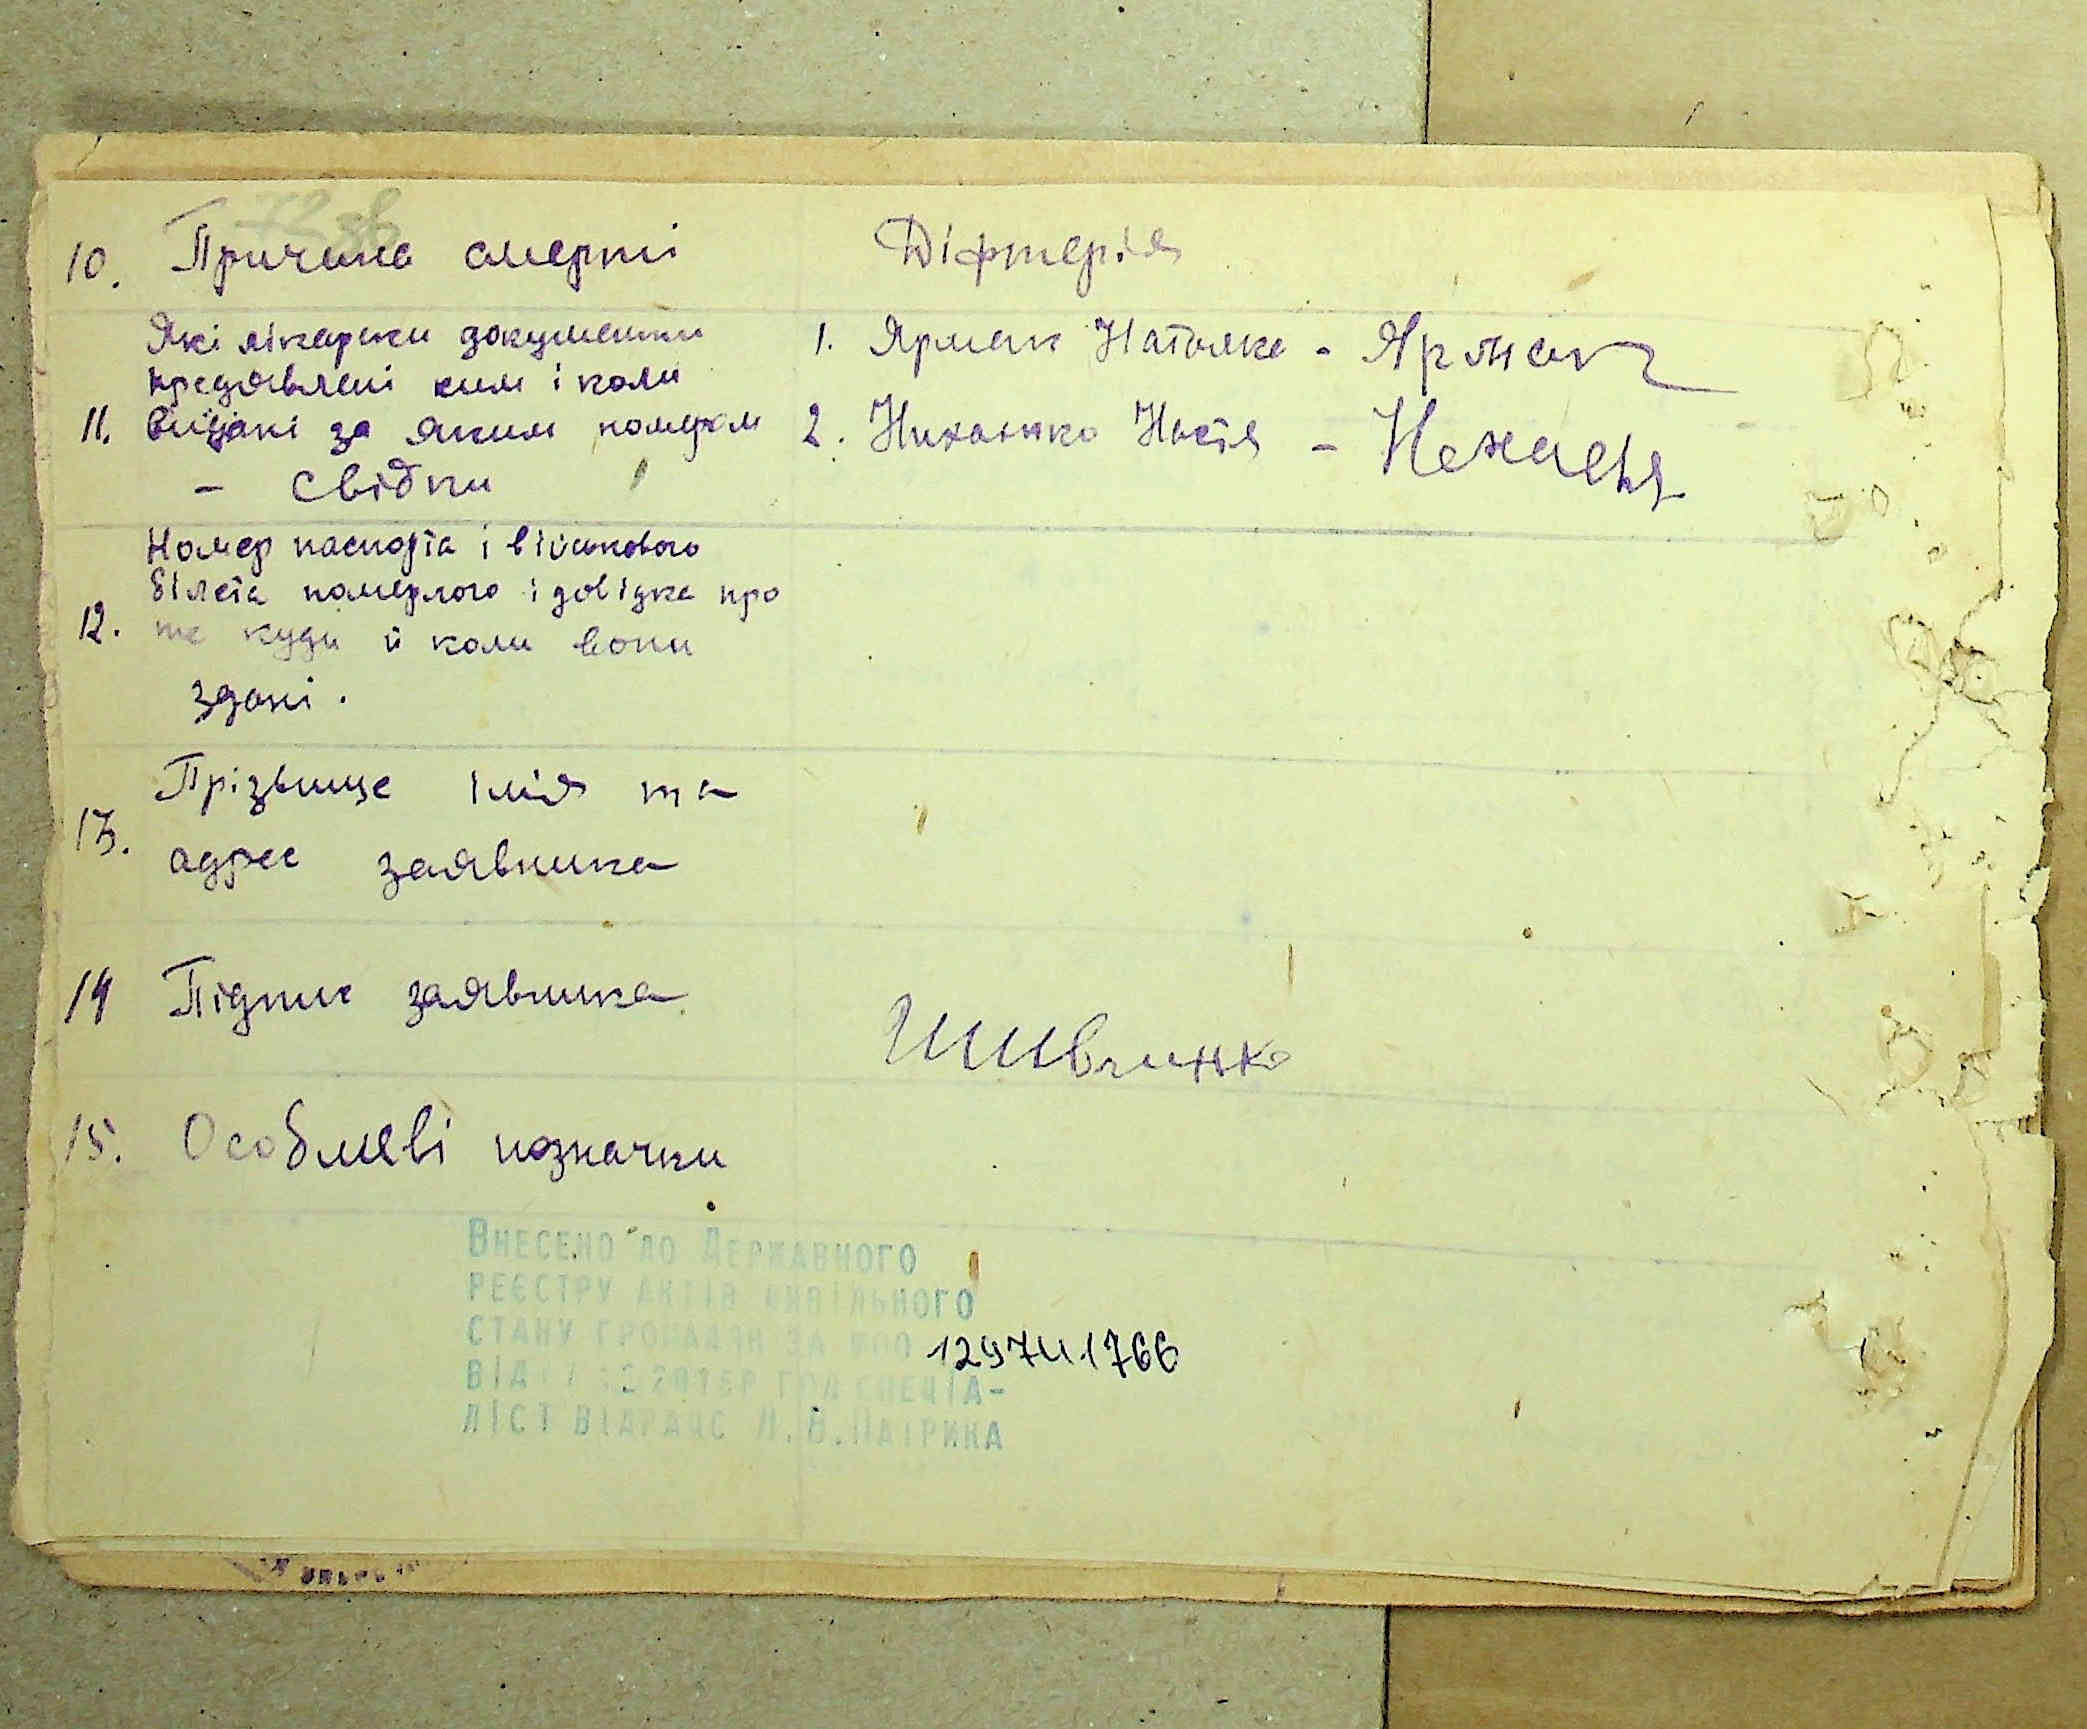 73 зв
10. Причина смерті Діфтерія
Які лікарски документи
предявлені ким і коли
11. видані за яким номером
- Свідки
1. Ярмак Наталка - Ярмак
2. Нихаенко Настя - Нехаеня
Номер паспорта і військового
білета померлого і довідка про
12. те куди й коли вони
здані.
Прізвище імія та
13. адрес заявника
14 Підпис заявника Шивчинко
15. Особливі позначки
Внесено до Державного
реєстру актів цивільного
стану громадян за №00 1297411766
від 2015р гол спеціа-
ліст відрацс